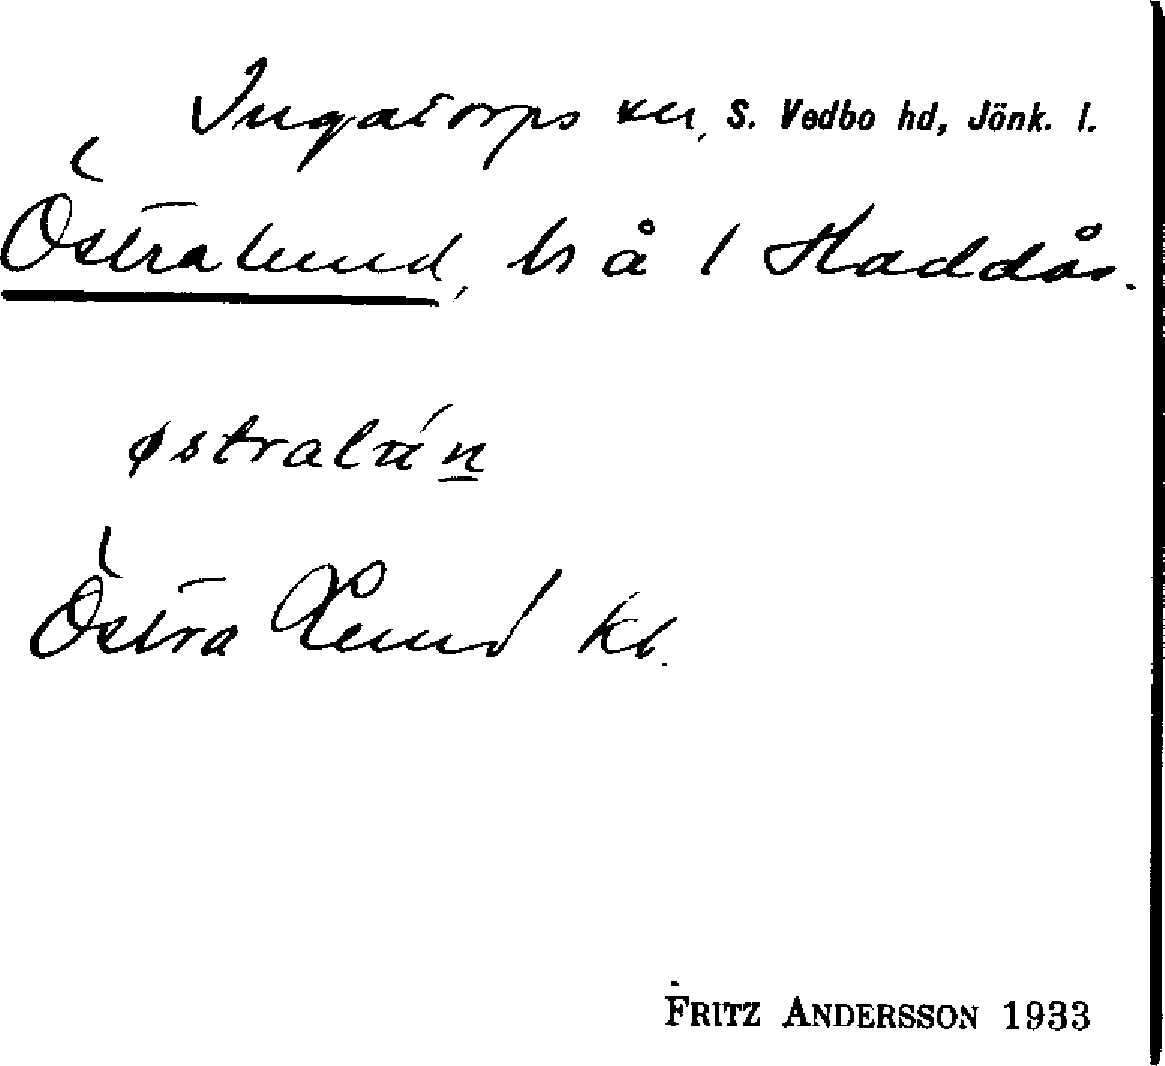 Ingatorps sn, S. Vedbo hd, Jönk. l.
Östralund, ls å 1 Haddås.
østralún
Östra Lund kb.
FRITZ ANDERSSON 1933